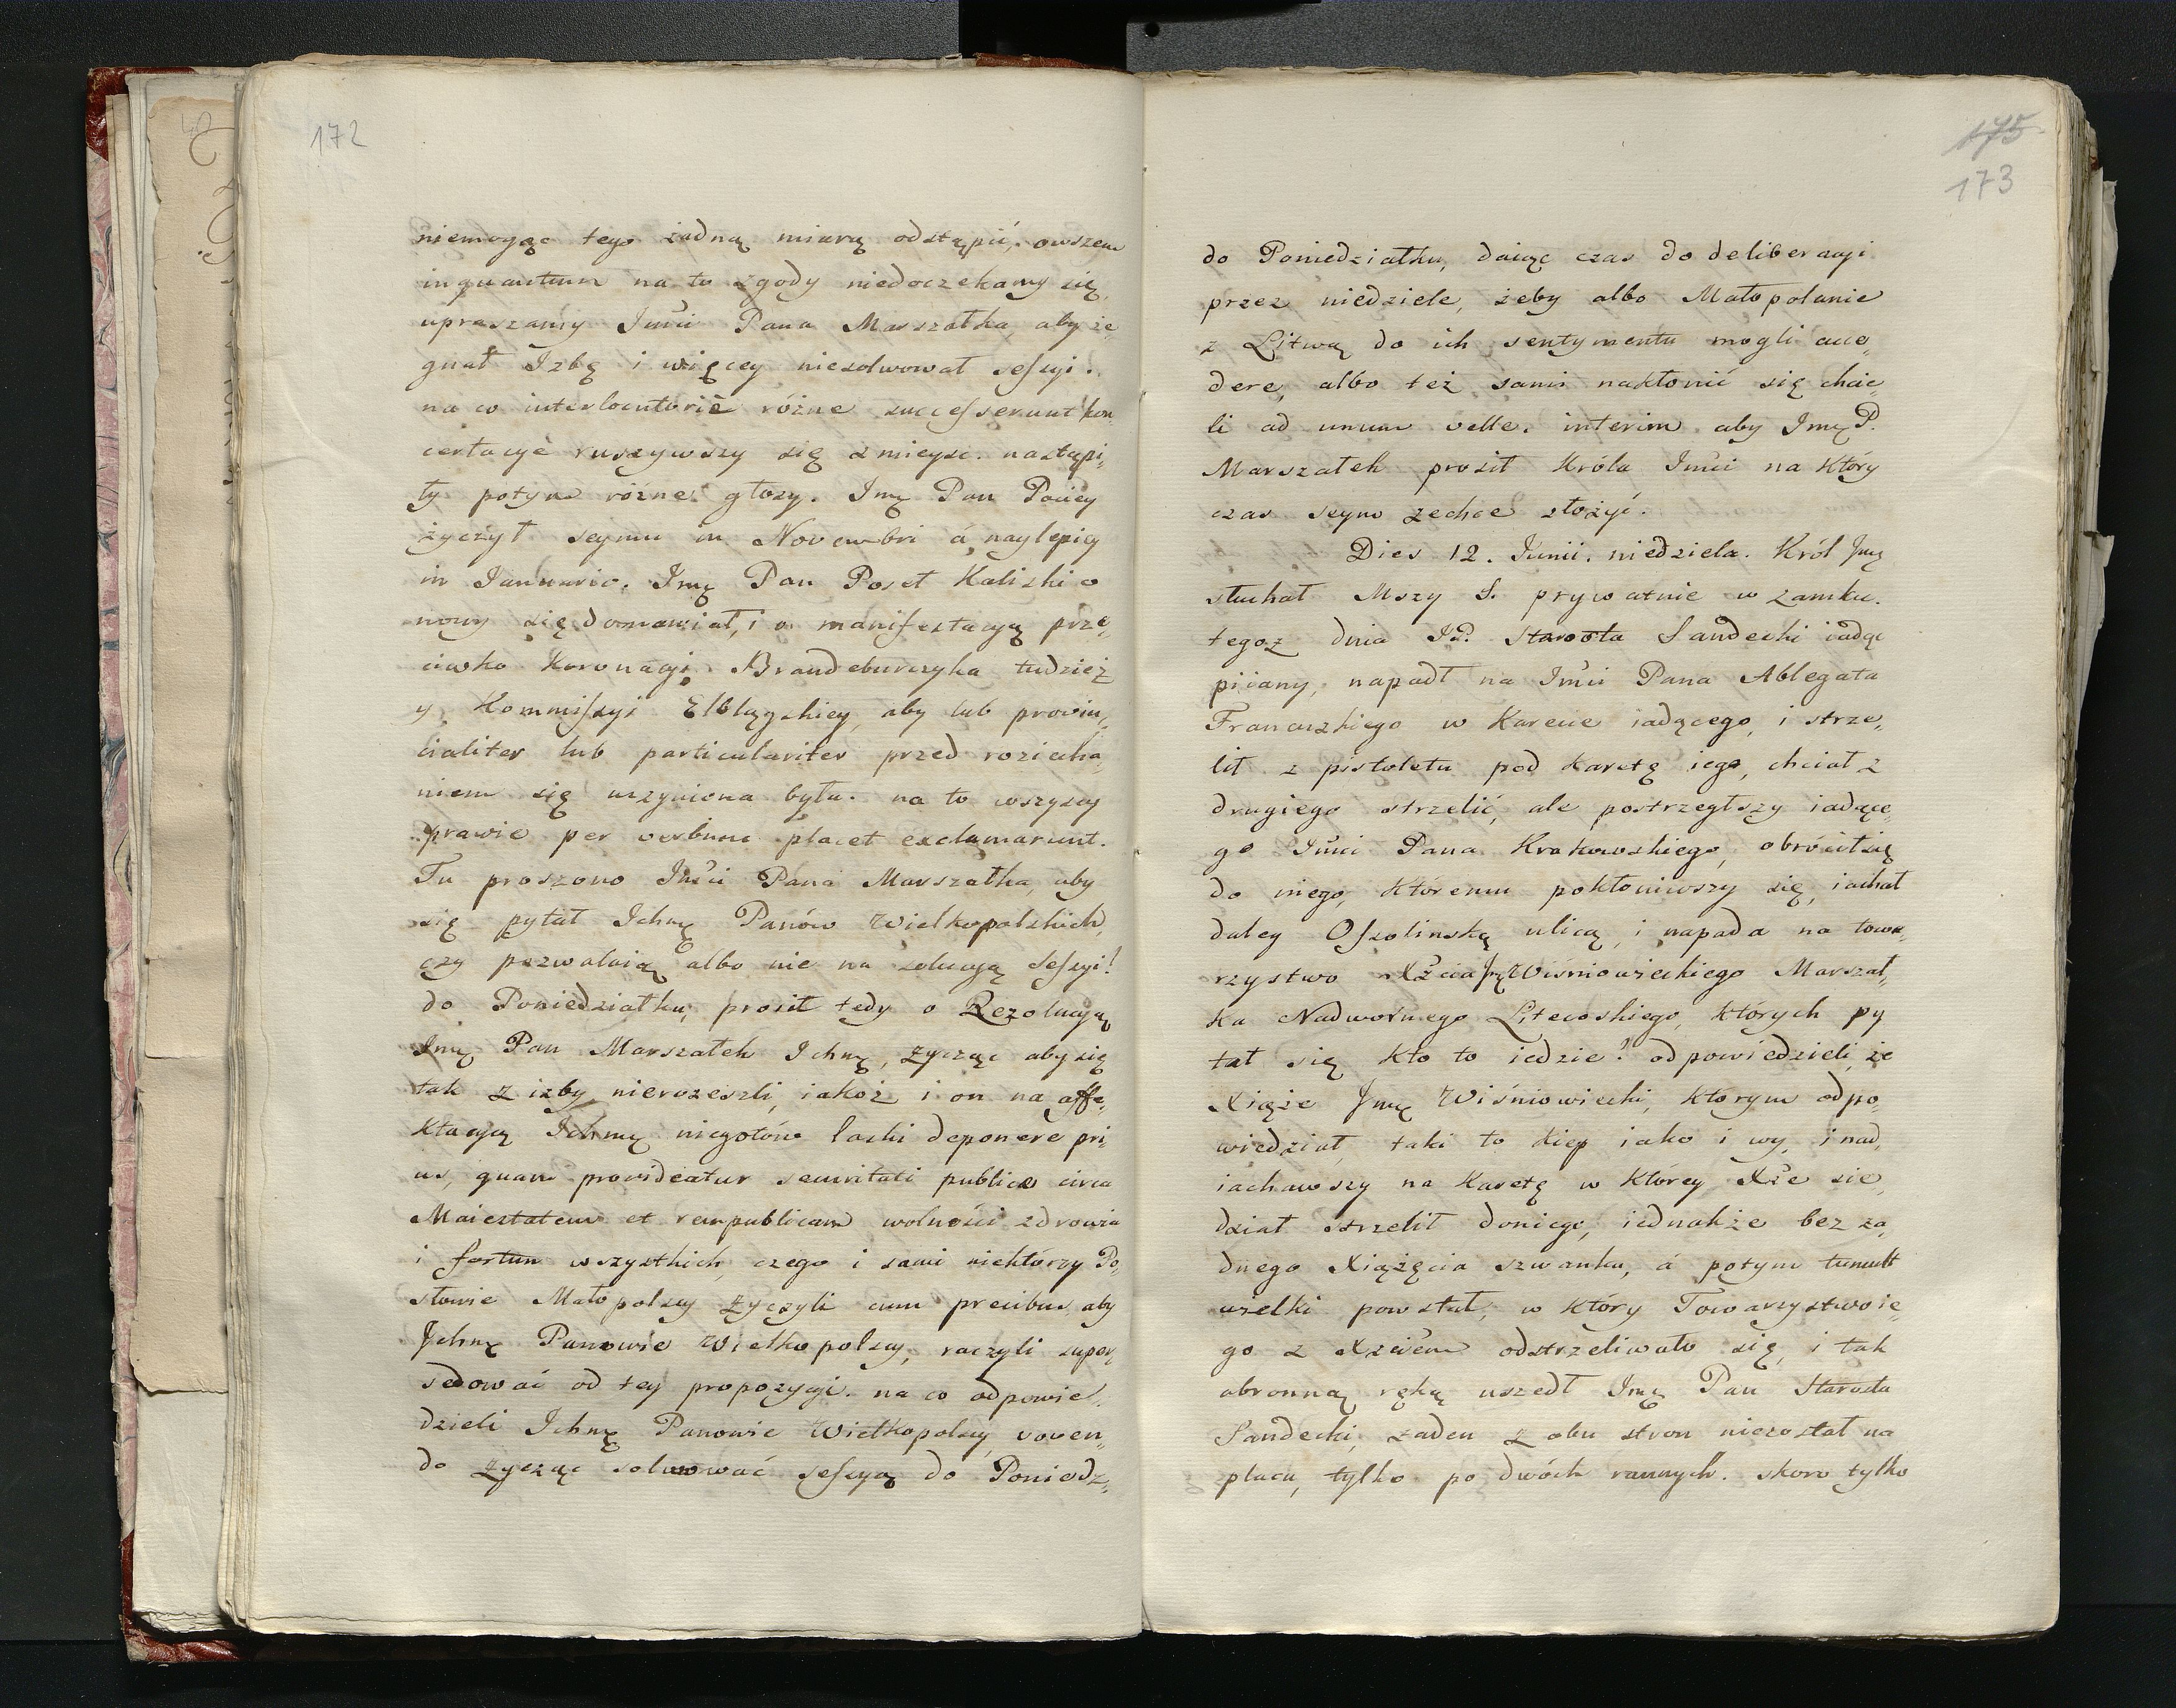 172
niemogąc tego żadną miarą odstąpić, owszem
inquantum na to zgody niedoczekamy się,
upraszamy Jmći Pana Marszałka, aby że„
gnał Izbę i więcey niesolwował sessyi.
na co interlocutorie różne successerunt kon„
certacye ruszywszy się z mieysc. nastąpi„
ły potym różne głosy. Jmę Pan Pociey
życzył seymu in Novembri á naylepiey
in Januario. Jmę Pan Poseł Kaliski o
nowy się domawiał, i o manifestacyą prze„
ciwko Koronacyi Brandeburczyka tudzież
y Kommissyi Elblągskiey, aby lub provin„
cialiter lub particulariter przed roziecha„
niem się uczyniona była. na to wszyscy
prawie per verbum placet exclamarunt.
Tu proszono Jmći Pana Marszałka, aby
się pytał Ichmę Panów Wielkopolskich,
czy pozwalaią albo nie na solucyą sessyi!
do Poniedziałku, prosił tedy o Rezolucyą
Jmę Pan Marszałek Ichmę, życząc aby się
tak z izby nierozeszli, iakoż i on na affe„
ktacyą Ichmę niegotów laski deponere pri„
us, quam provideatur securitati publicæ circa
Maiestatem et rempublicam wolności zdrowia
i fortun wszystkich, czego i sami niektórzy Po„
słowie Małopolscy życzyli cum precibus, aby
Ichmę Panowie Wielkopolscy, raczyli super„
sedować od tey propozycyi. na co odpowie„
dzieli Ichmę Panowie Wielkopolscy, voven„
do życząc solwować sessyą do Poniedz„
175
173
do Poniedziałku, daiąc czas do deliberacyi
przez niedziele, żeby albo Małopolanie
z Litwą do ich sentymentu mogli acce„
dere, albo też sami nakłonić się chcie„
li ad unum velle. interim aby Jmę P.
Marszałek prosił Króla Jmći na który
czas seym zechce złożyć.
Dies 12. Junii. niedziela. Król Jmę
słuchał Mszy S. prywatnie w zamku.
tegoż dnia JP. Starosta Sandecki iadąc
piiany, napadł na Jmći Pana Ablegata
Francuzkiego w Karecie iadącego, i strze„
lił z pistoletu pod karetę iego, chciał z
drugiego strzelić, ale postrzegłszy iadące„
go Jmći Pana Krakowskiego, obrócił się
do niego, któremu pokłoniwszy się, iachał
daley Ossolinską ulicą, i napada na towa„
rzystwo Xżcia Jmę Wiśniowieckiego Marszał„
ka Nadwornego Litewskiego, których py
tał się kto to iedzie? odpowiedzieli, że
Xiąże Jmę Wiśniowiecki, którym odpo„
wiedział, taki to kiep iako i wy, i nad„
iachawszy na Karetę w którey Xże sie„
dział strzelił doniego, iednakże bez ża„
dnego Xiążęcia szwanku, á potym tumult
wielki powstał, w który Towarzystwo ie„
go z Xżciem odstrzeliwało się, i tak
obronną ręką uszedł Jmę Pan Starosta
Sandecki, żaden z obu stron niezostał na
placu, tylko po dwóch rannych. skoro tylko